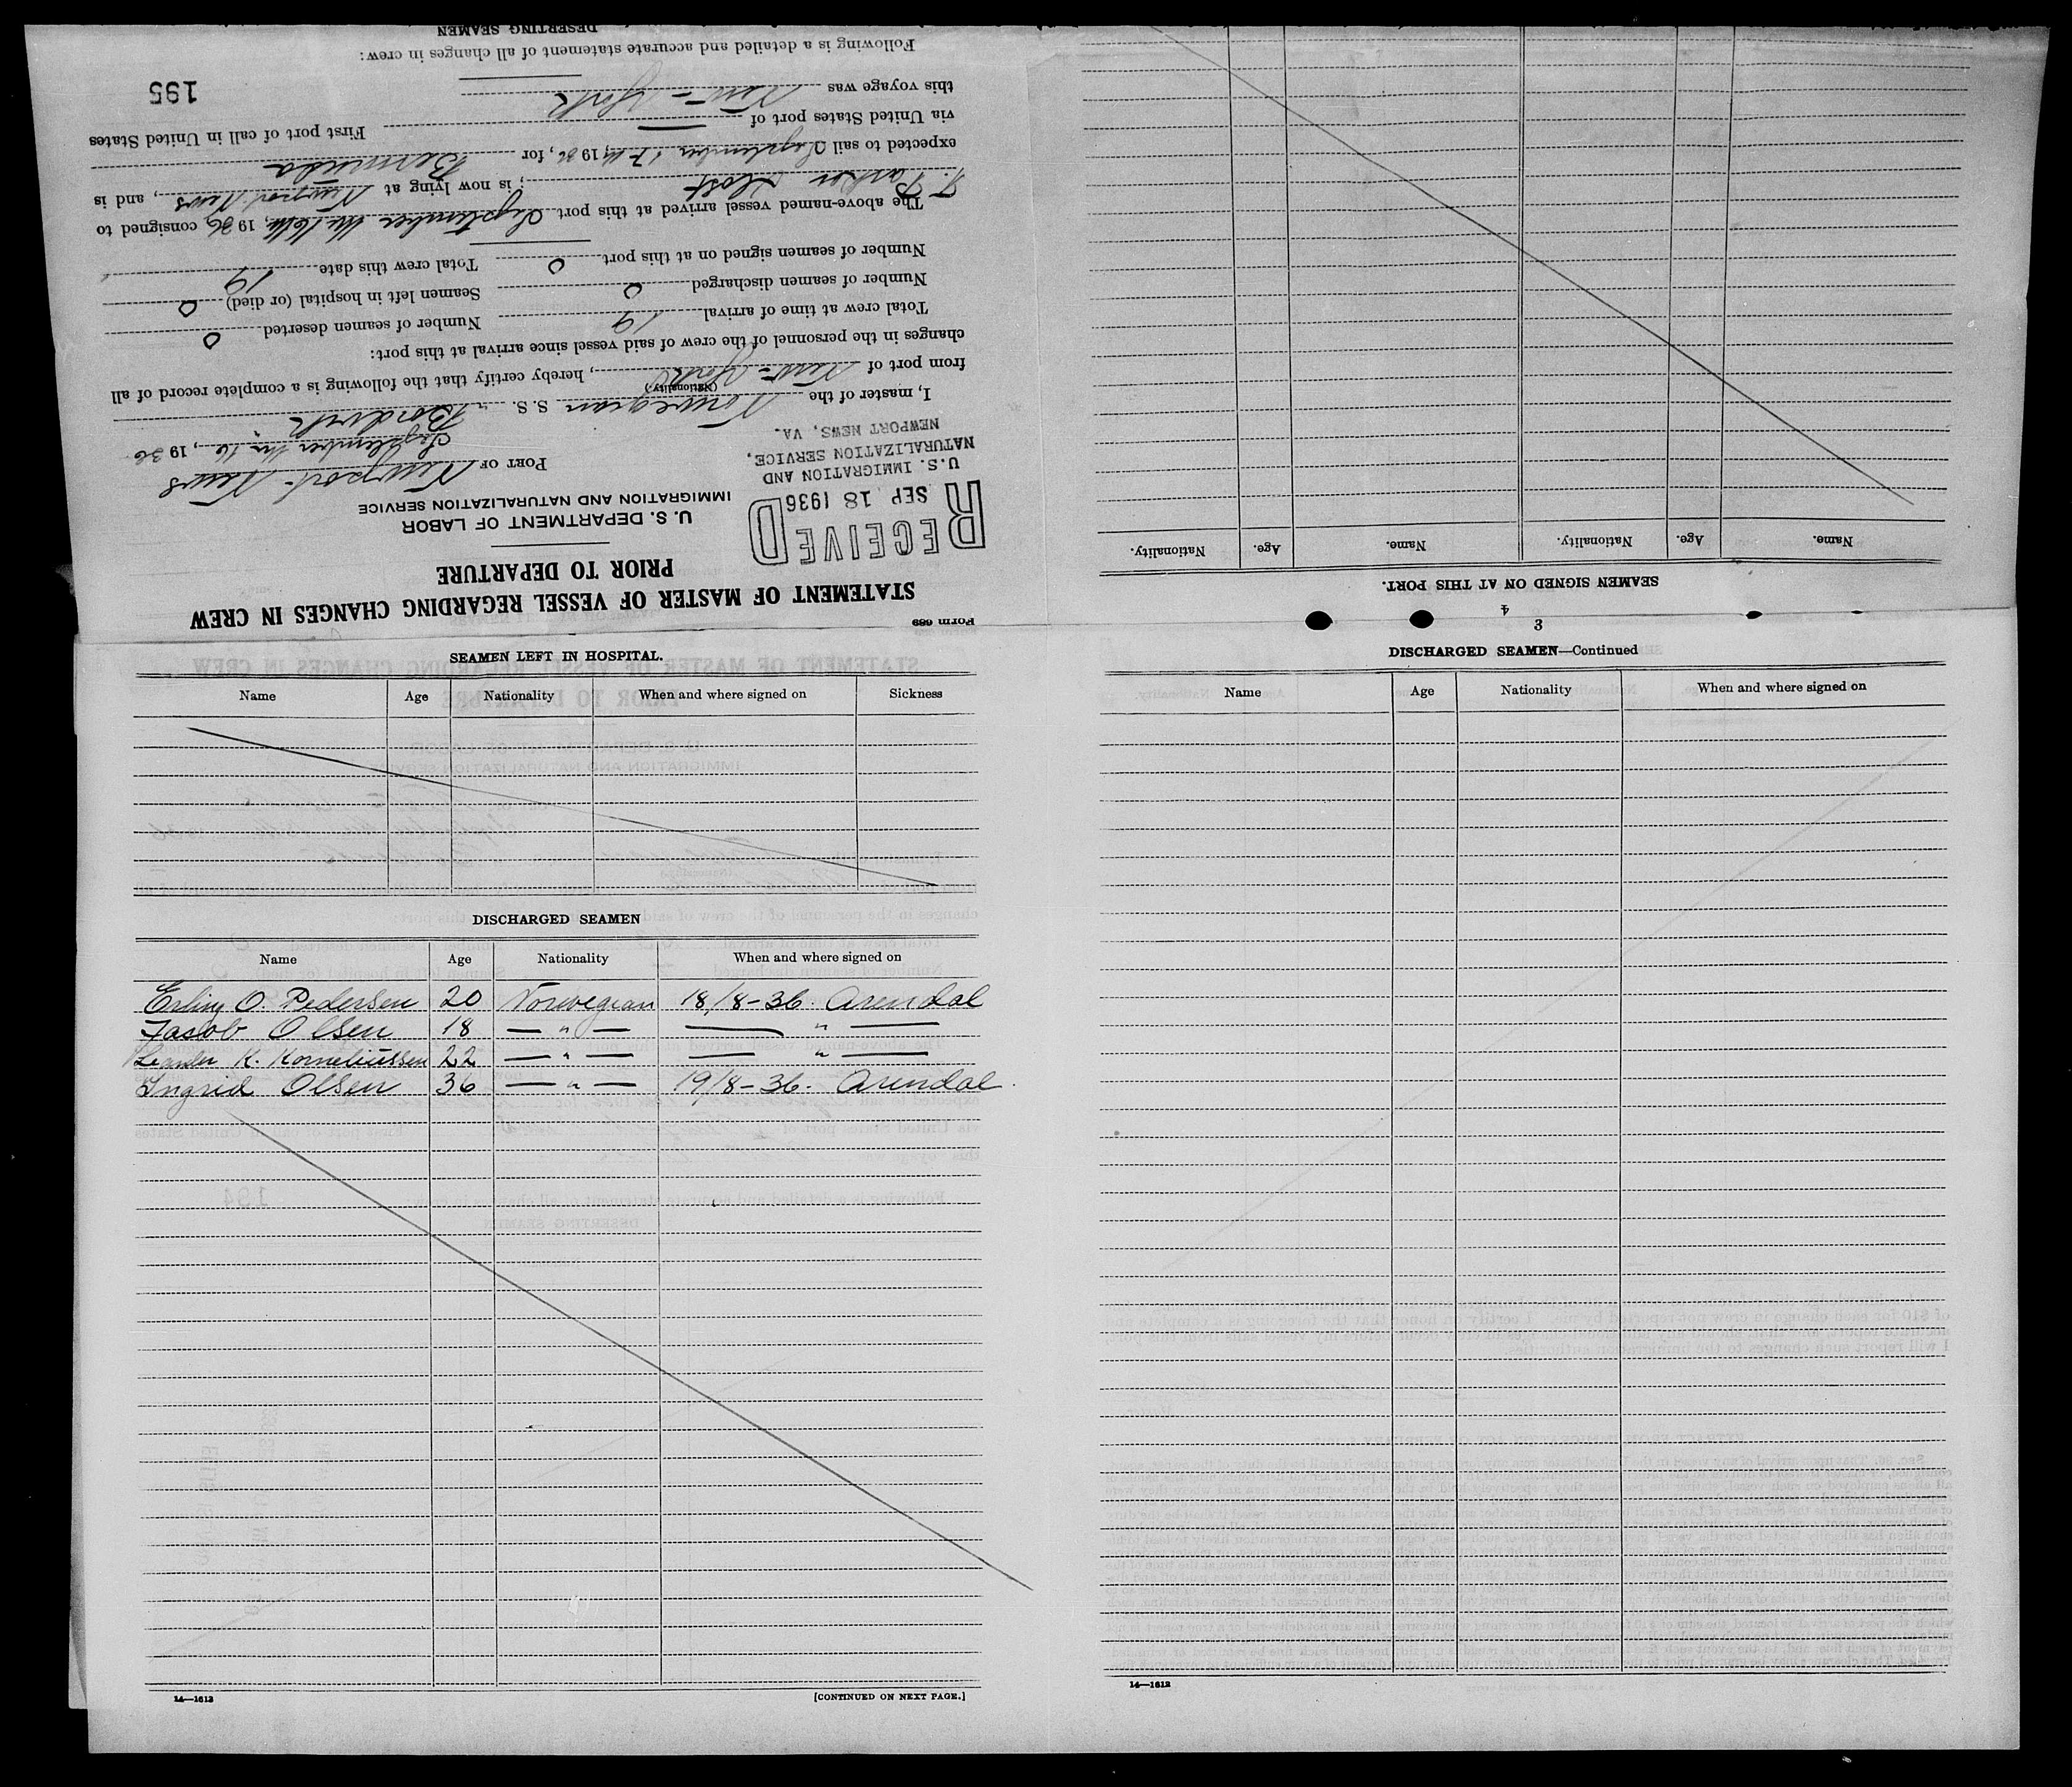 DESERTING SEAMEN
Following is a detailed and accurate statement of all changes in crew:
195
this voyage was New-York
via United States port of — First port of call in United States
expected to sail September 17th, 1936, for Bermuda
T. Parker Host, is now lying at Newport News, and is
The above-named vessel arrived at this port September the 16th, 1936, consigned to
Number of seamen signed on at this port 0 Total crew this date 19
Number of seamen discharged 0 Seamen left in hospital (or died) 0
Total crew at time of arrival 19 Number of seamen deserted 0
changes in the personnel of the crew of said vessel since arrival at this port:
from port of New-York, hereby certify that the following is a complete record of all
(Nationality)
I, master of the Norwegian S. S. "Bondvik
September the 16, 1936
PORT OF Newport-News
RECEIVED
SEP 18 1936
U.S. IMMIGRATION AND
NATURALIZATION SERVICE,
NEWPORT NEWS, VA.
IMMIGRATION AND NATURALIZATION SERVICE
U. S. DEPARTMENT OF LABOR
PRIOR TO DEPARTURE
STATEMENT OF MASTER OF VESSEL REGARDING CHANGES IN CREW
Form 689
Name. Age. Nationality. Name. Age. Nationality.
SEAMEN SIGNED ON AT THIS PORT.
4
3
SEAMEN LEFT IN HOSPITAL.
Name Age Nationality When and where signed on Sickness
DISCHARGED SEAMEN
Name Age Nationality When and where signed on
Erling O. Pedersen 20 Norwegian 18/8-36. Arendal
Jacob Olsen 18 — " — — " —
Leander K. Korneliussen 22 — " — — " —
Ingrid Olsen 36 — " — 19/8-36. Arendal.
14—1612
[CONTINUED ON NEXT PAGE.]
DISCHARGED SEAMEN—Continued
Name Age Nationality When and where signed on
14—1612